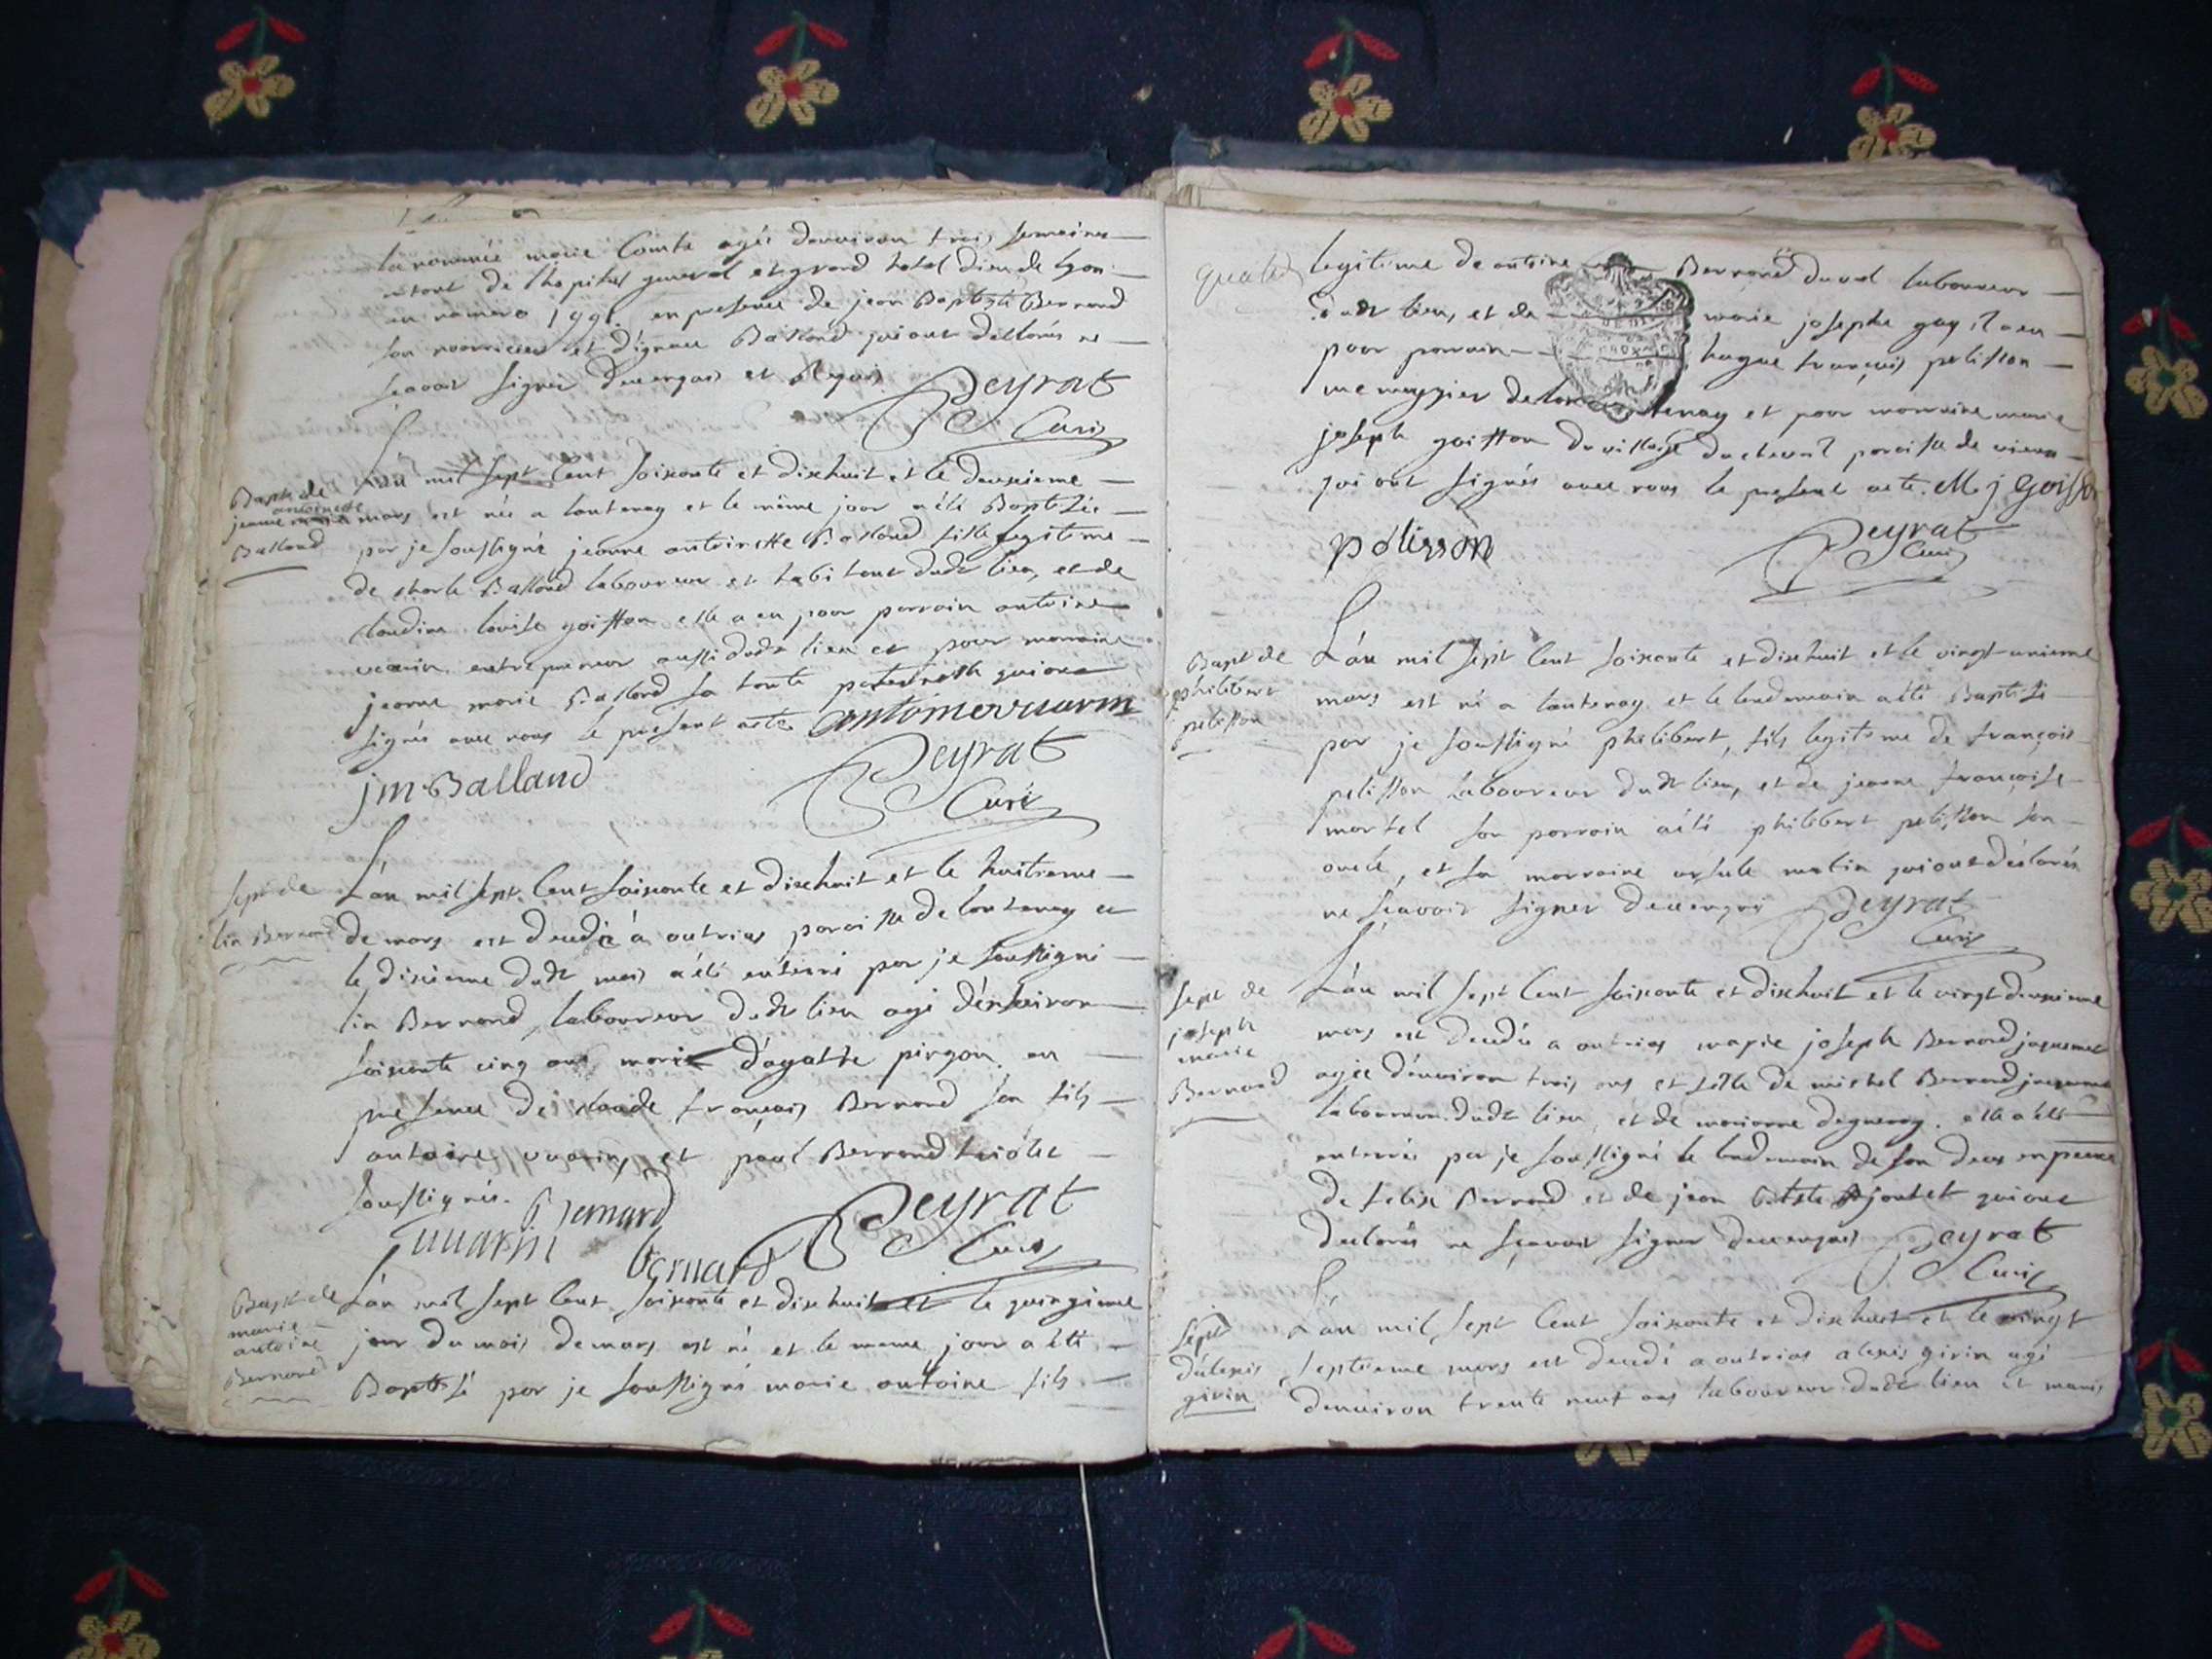 la nommée marie Comte agée denviron trois semaines
enfant de lhopital general et grand hotel dieu de lyon
en presence de jean Baptiste Bernard
son nourricier et d'ignace Balland qui ont déclarés ne
scavoir signer de ce enquis et Requis Peyrat
Curé
Bapt de
jeanne antoinette
Balland
L'an mil sept Cent soixante et dixhuit et le deuxieme
mars est née a lantenay et le même jour a été Baptisée
par je soussigné jeanne antoinette Balland fille legitime
de charle Balland laboureur et habitant dudt lieu, et de
claudine louise goiffon elle a eu pour parrain antoine
vuarin entrepreneur aussi dudt lieu et pour marraine
jeanne marie Balland sa tante paternelle qui ont
signés avec nous le present acte antoine vuarin
jm Balland
Peyrat
Curé
sept de
lin Bernard
L'an mil sept Cent soixante et dixhuit et le huitieme
de mars est decedé á outrias paroisse de lantenay et
le dixieme dudt mois a été enterré par je soussigné
lin Bernard, laboureur dudt lieu agé d'environ
soixante cinq ans mari d'agathe pingon en
presence de claude françois Bernard son fils
antoine vuarin, et paul Bernard
soussignés. Bernard
vuarin Bernard Peyrat
Curé
Bapt de
marie
antoine
Bernard
L'an mil sept Cent soixante et dixhuit et le quinzieme
jour du mois de mars est né et le meme jour a été
Baptisé par je soussigné marie antoine fils
legitime de antoine Bernard duvel laboureur
dudt lieu, et de marie josephe guy il a eu
pour parrain hugue françois pelisson
de lantenay et pour marraine marie
joseph goiffon du village du chevril paroisse de vieu
qui ont signés avec nous le present acte. M j Goiffon
pelisson
Peyrat
Curé
Bapt de
philibert
pelisson
L'an mil sept Cent soixante et dixhuit et le vingt unieme
mars est né a lantenay et le lendemain a été Baptisé
par je soussigné philibert, fils legitime de françois
pelisson laboureur dudt lieu, et de jeanne françoise
martel son parrain a été philibert pelisson son
oncle, et sa marraine ursule matin qui ont déclarés
ne sçavoir signer de ce enquis Peyrat
Curé
sept de
joseph
marie
Bernard
L'an mil sept Cent soixante et dixhuit et le vingt deuxieme
mars est decedée a outrias marie joseph Bernard jaquemet
agée d'environ trois ans et fille de michel Bernard jaquemet
laboureur dudt lieu, et de marianne digueroy. elle a été
enterrée par je soussigné le lendemain de son deces en presence
de felix Bernard et de jean Btste joutet qui ont
declarés ne sçavoir signer de ce enquis Peyrat
Curé
sept
d'alexis
girin
L'an mil sept Cent soixante et dixhuit et le vingt
septieme mars est decedé a outrias alexis girin agé
denviron trente neuf ans laboureur dudt lieu et mari